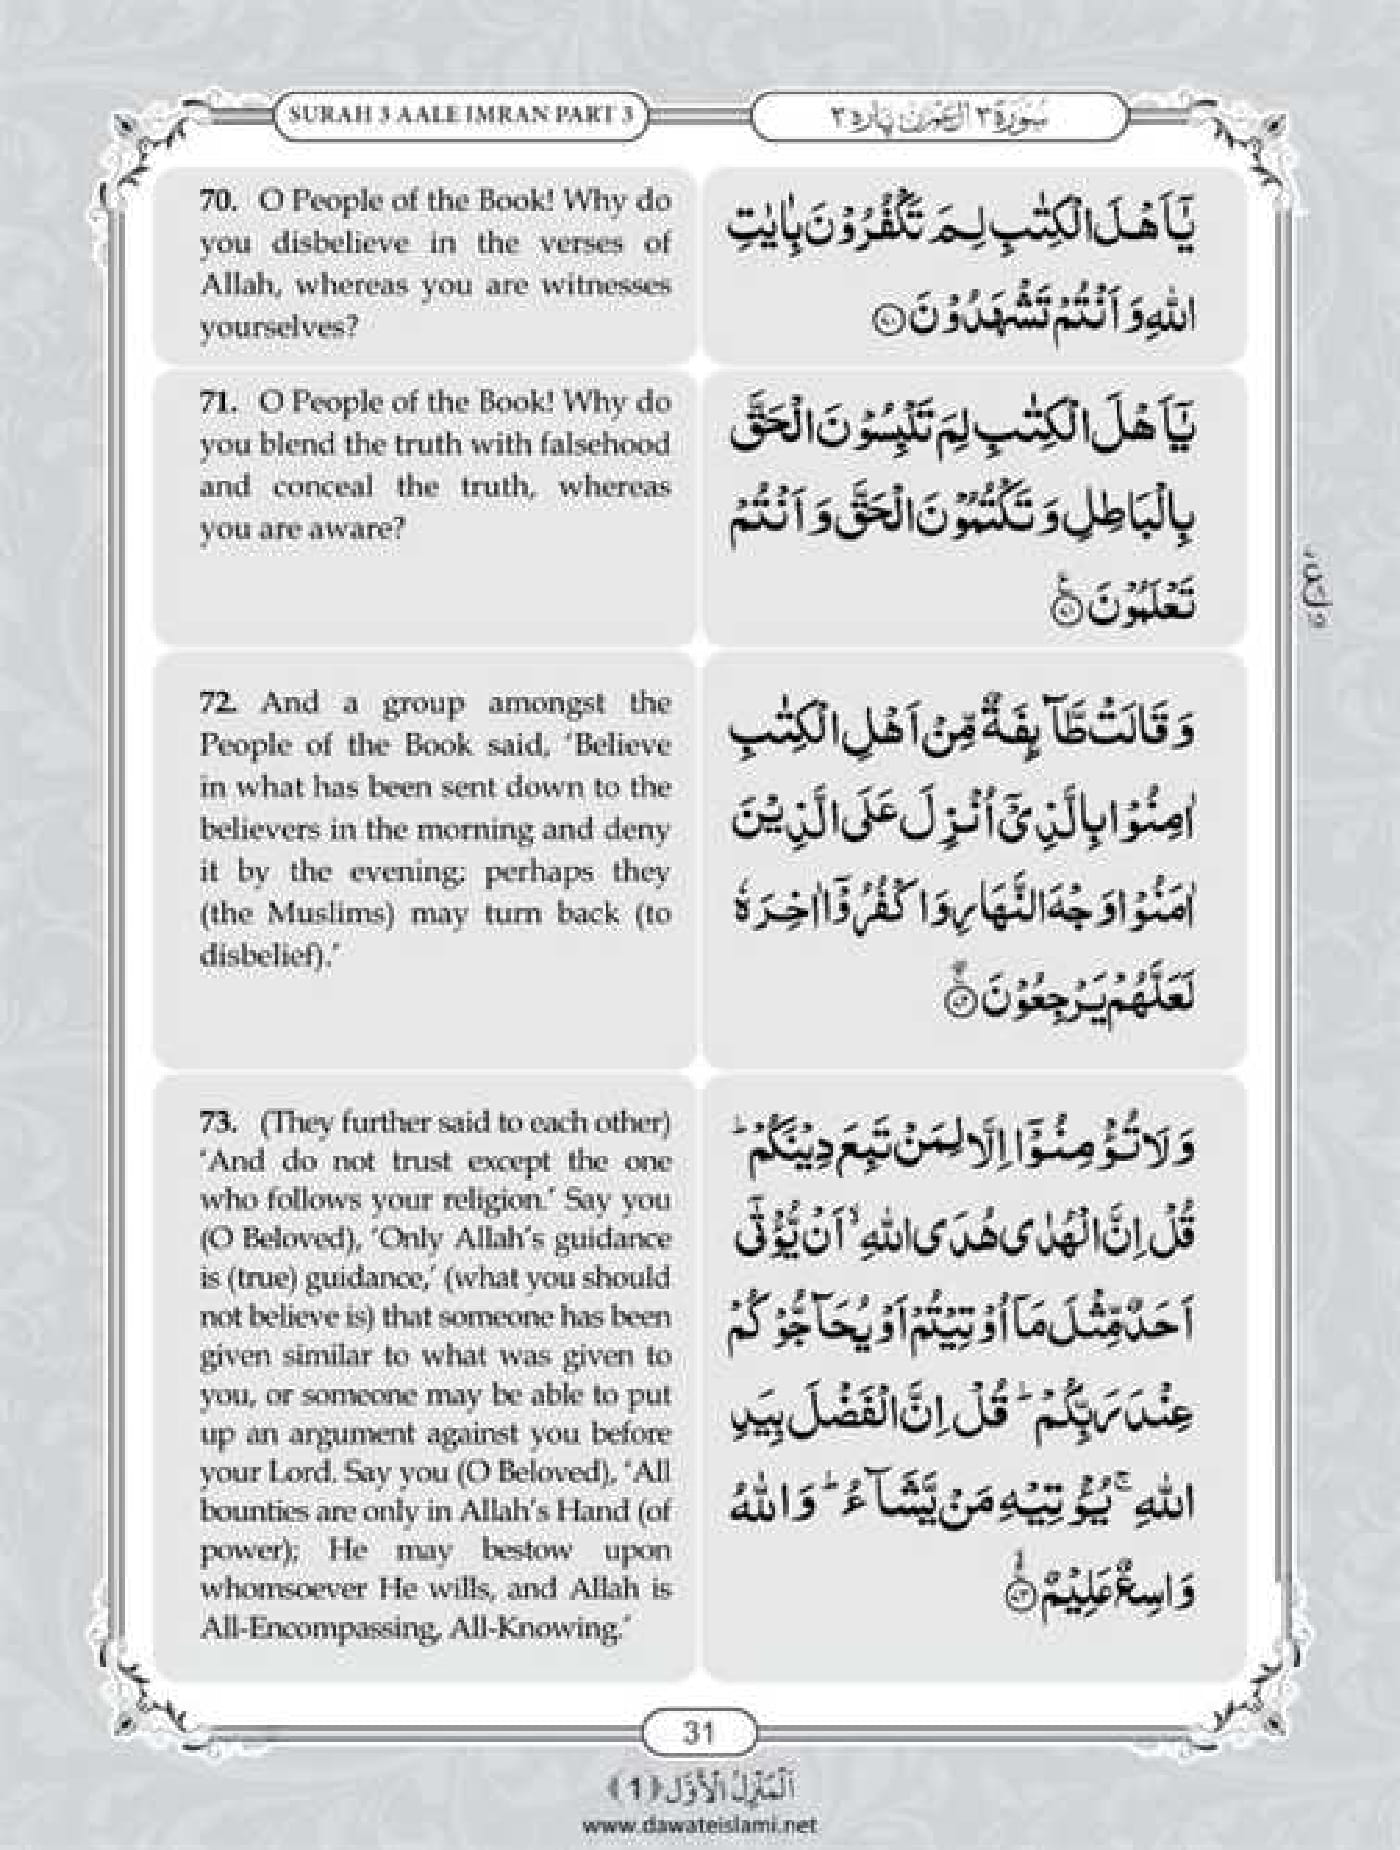 SURAH 3 AALE IMRAN PART 3
سُوْرَة ٣ اٰلِ عِمْرٰن پارہ ٣
70. O People of the Book! Why do
you disbelieve in the verses of
Allah, whereas you are witnesses
yourselves?
يٰۤاَهْلَ الْكِتٰبِ لِمَ تَكْفُرُوْنَ بِاٰيٰتِ
اللّٰهِ وَ اَنْتُمْ تَشْهَدُوْنَ ﴿۷۰﴾
71. O People of the Book! Why do
you blend the truth with falsehood
and conceal the truth, whereas
you are aware?
يٰۤاَهْلَ الْكِتٰبِ لِمَ تَلْبِسُوْنَ الْحَقَّ
بِالْبَاطِلِ وَ تَكْتُمُوْنَ الْحَقَّ وَ اَنْتُمْ
تَعْلَمُوْنَ ﴿۷۱﴾
72. And a group amongst the
People of the Book said, ‘Believe
in what has been sent down to the
believers in the morning and deny
it by the evening; perhaps they
(the Muslims) may turn back (to
disbelief).’
وَ قَالَتْ طَّآىِٕفَةٌ مِّنْ اَهْلِ الْكِتٰبِ
اٰمِنُوْا بِالَّذِیْۤ اُنْزِلَ عَلَى الَّذِيْنَ
اٰمَنُوْا وَجْهَ النَّهَارِ وَ اكْفُرُوْۤا اٰخِرَهٗ
لَعَلَّهُمْ يَرْجِعُوْنَ ﴿۷۲﴾
73. (They further said to each other)
‘And do not trust except the one
who follows your religion.’ Say you
(O Beloved), ‘Only Allah’s guidance
is (true) guidance,’ (what you should
not believe is) that someone has been
given similar to what was given to
you, or someone may be able to put
up an argument against you before
your Lord. Say you (O Beloved), ‘All
bounties are only in Allah’s Hand (of
power); He may bestow upon
whomsoever He wills, and Allah is
All-Encompassing, All-Knowing.’
وَ لَا تُؤْمِنُوْۤا اِلَّا لِمَنْ تَبِعَ دِيْنَكُمْؕ
قُلْ اِنَّ الْهُدٰى هُدَى اللّٰهِۙ اَنْ يُّؤْتٰۤى
اَحَدٌ مِّثْلَ مَاۤ اُوْتِيْتُمْ اَوْ يُحَآجُّوْكُمْ
عِنْدَ رَبِّكُمْؕ قُلْ اِنَّ الْفَضْلَ بِيَدِ
اللّٰهِۚ يُؤْتِيْهِ مَنْ يَّشَآءُؕ وَ اللّٰهُ
وَاسِعٌ عَلِيْمٌ ﴿۷۳﴾
31
اَلْمَنْزِلُ الْاَوَّل ﴿1﴾
www.dawateislami.net